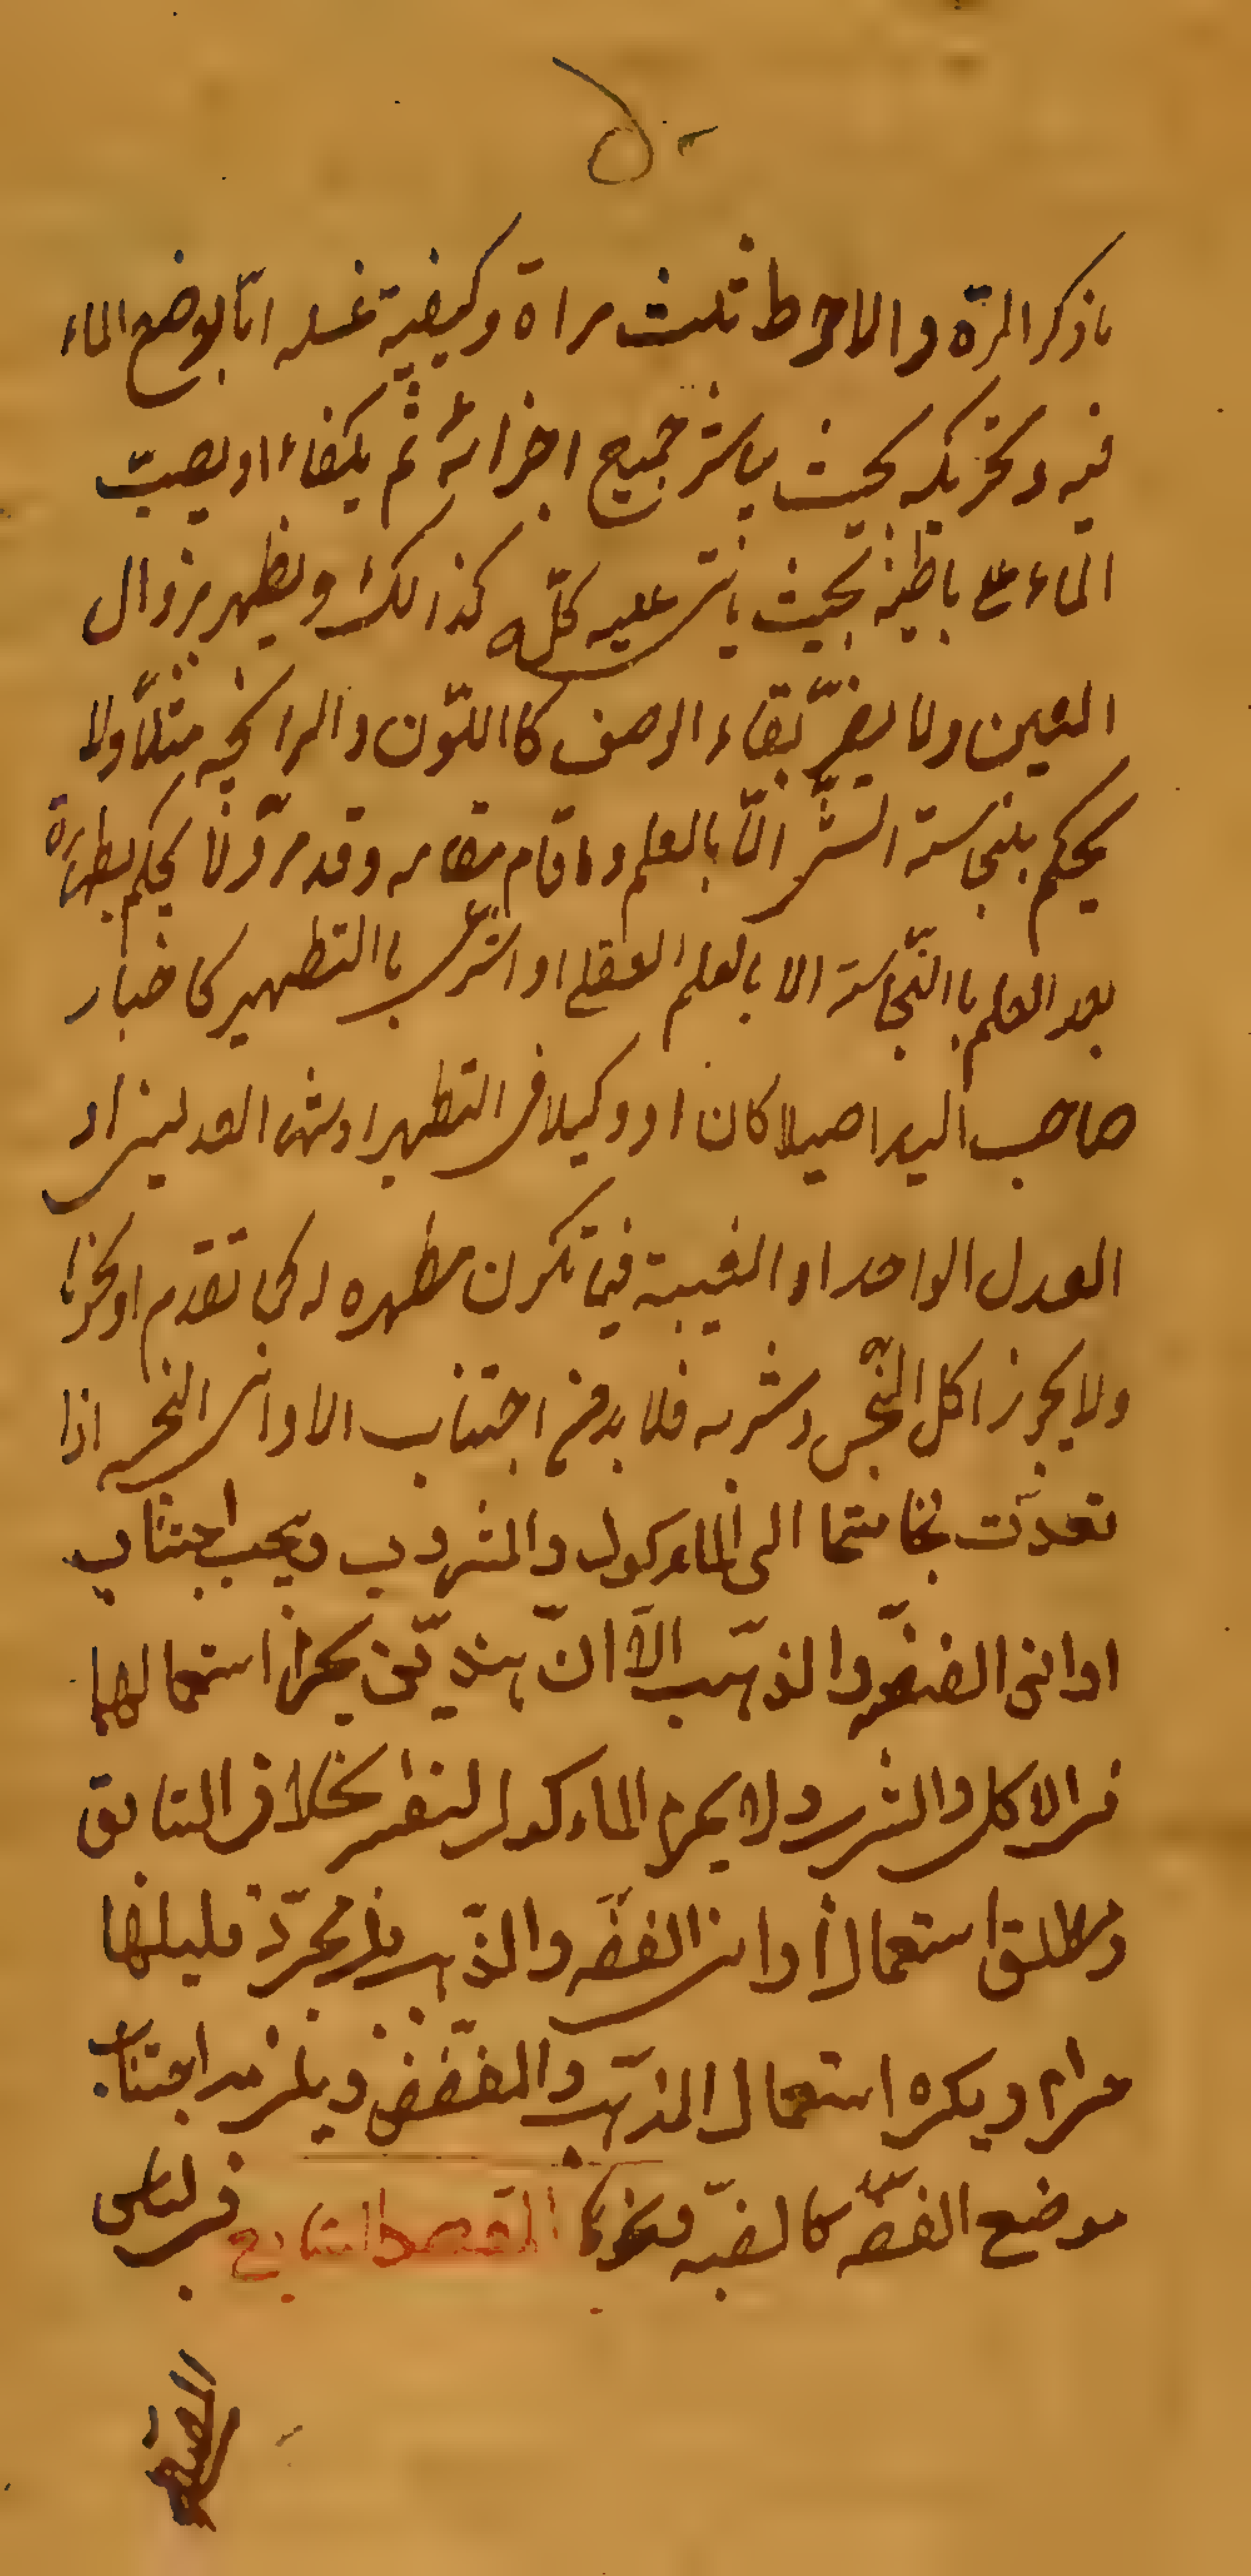 ما ذكر المرة والاحوط ثلث مراة وكيفية غسله امّا بوضع الماء
فيه وتحريكه بحيث يباشر جميع اجزائه ثم يكفاء او يصبّ
الماء على باطنه بحيث يأتى عليه كلّه كذالك ويطهر بزوال
العين ولا يضرّ بقاء الوصف كااللّون والرائحه مثلاً ولا
يحكم بنجاسة الشئ الّا بالعلم وما قام مقامه وقد مرّ ولا يحكم بطهارة
بعد العلم باالنّجاسة الا بالعلم العقلى او الشرعى باالتطهير كاخبار
صاحب اليد اصيلا كان او وكيلا فى التطهير او شهادة العدلين او
العدل الواحد او الغيبة فيما تكون مطهره له كما تقدم او نحوها
ولا يجوز اكل النّجس وشربه فلا بد من اجتناب الاوانى النجسه اذا
تعدّت نجاستها الى الماءكول والمشروب ويجب اجتناب
اوانى الفضّه والذهب الّا انّ هذين يحرم استعمالها
فى الاكل والشرب ولا يحرم الماءكول لنفسه بخلاف السّابق
ومطلق استعمال اوانى الفضّه والذّهب
حرام ويكره استعمال المذهّب والمفضّض ويلزمه اجتناب
موضع الفضّه كالضبّه ونحوها المقصد السّابع فى لباس
المصلى